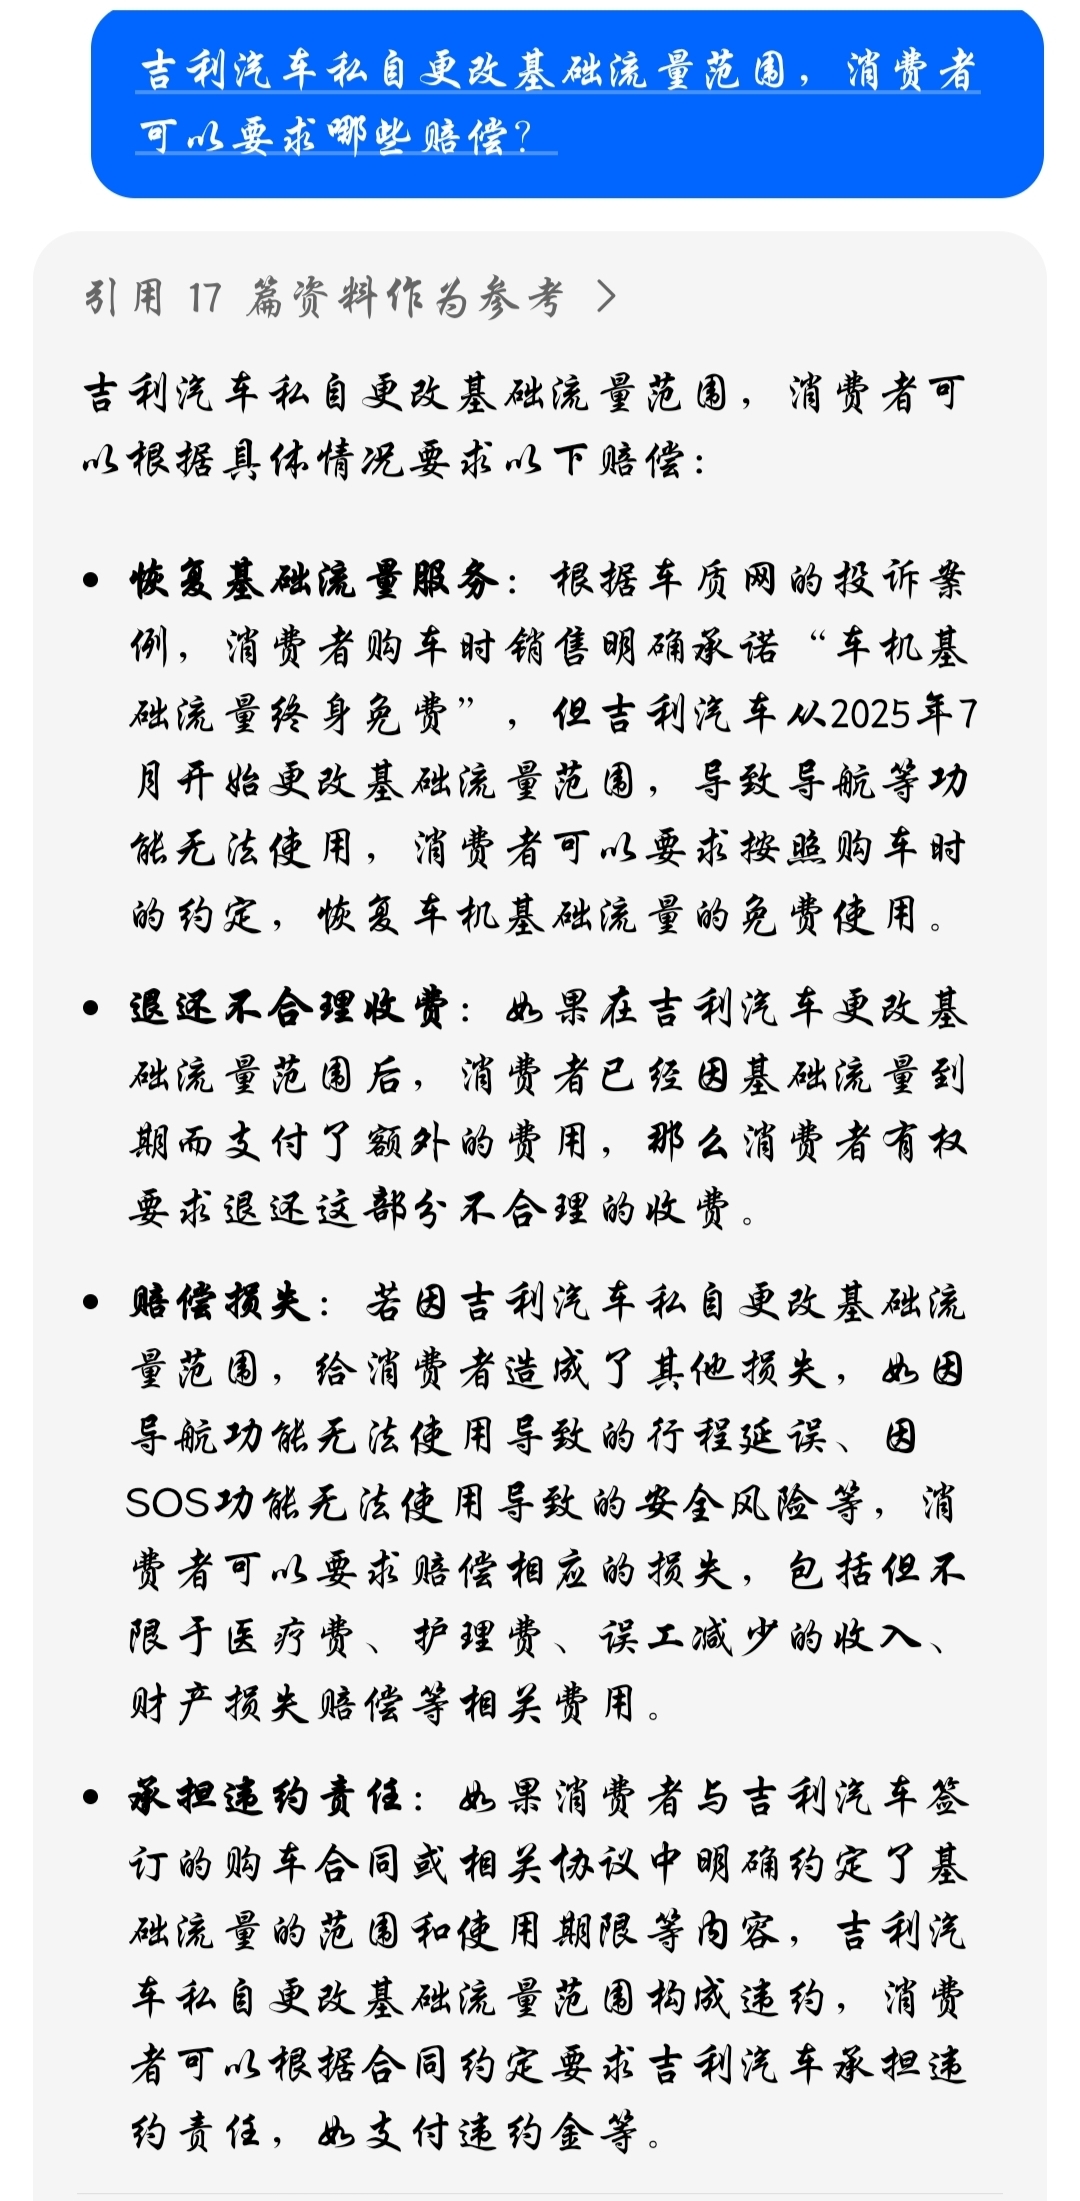 吉利汽车私自更改基础流量范围，消费者
可以要求哪些赔偿？
引用 17 篇资料作为参考 >
吉利汽车私自更改基础流量范围，消费者可
以根据具体情况要求以下赔偿：
• 恢复基础流量服务：根据车质网的投诉案
例，消费者购车时销售明确承诺“车机基
础流量终身免费”，但吉利汽车从2025年7
月开始更改基础流量范围，导致导航等功
能无法使用，消费者可以要求按照购车时
的约定，恢复车机基础流量的免费使用。
• 退还不合理收费：如果在吉利汽车更改基
础流量范围后，消费者已经因基础流量到
期而支付了额外的费用，那么消费者有权
要求退还这部分不合理的收费。
• 赔偿损失：若因吉利汽车私自更改基础流
量范围，给消费者造成了其他损失，如因
导航功能无法使用导致的行程延误、因
SOS功能无法使用导致的安全风险等，消
费者可以要求赔偿相应的损失，包括但不
限于医疗费、护理费、误工减少的收入、
财产损失赔偿等相关费用。
• 承担违约责任：如果消费者与吉利汽车签
订的购车合同或相关协议中明确约定了基
础流量的范围和使用期限等内容，吉利汽
车私自更改基础流量范围构成违约，消费
者可以根据合同约定要求吉利汽车承担违
约责任，如支付违约金等。